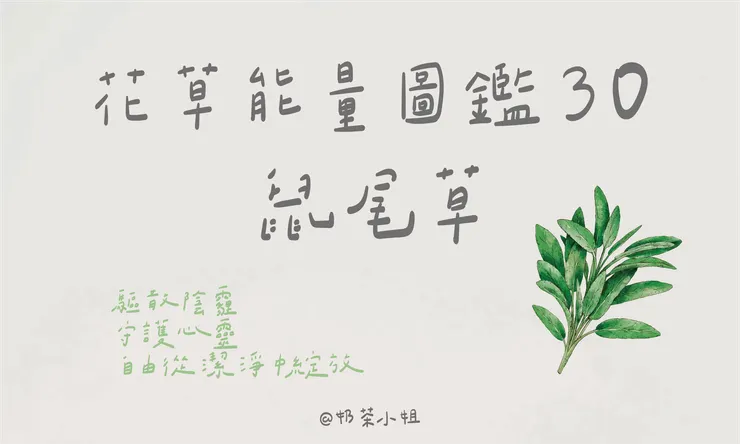 花草能量圖鑑30
鼠尾草
驅散陰霾
守護心靈
自由從潔淨中綻放
@奶茶小姐